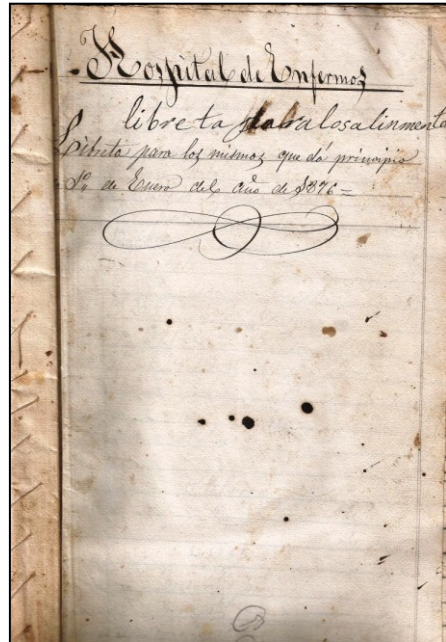 Hospital de Enfermos
libreta para los alinmento
Libreta para los mismos que dá principio
1º de Enero del año de 1876=